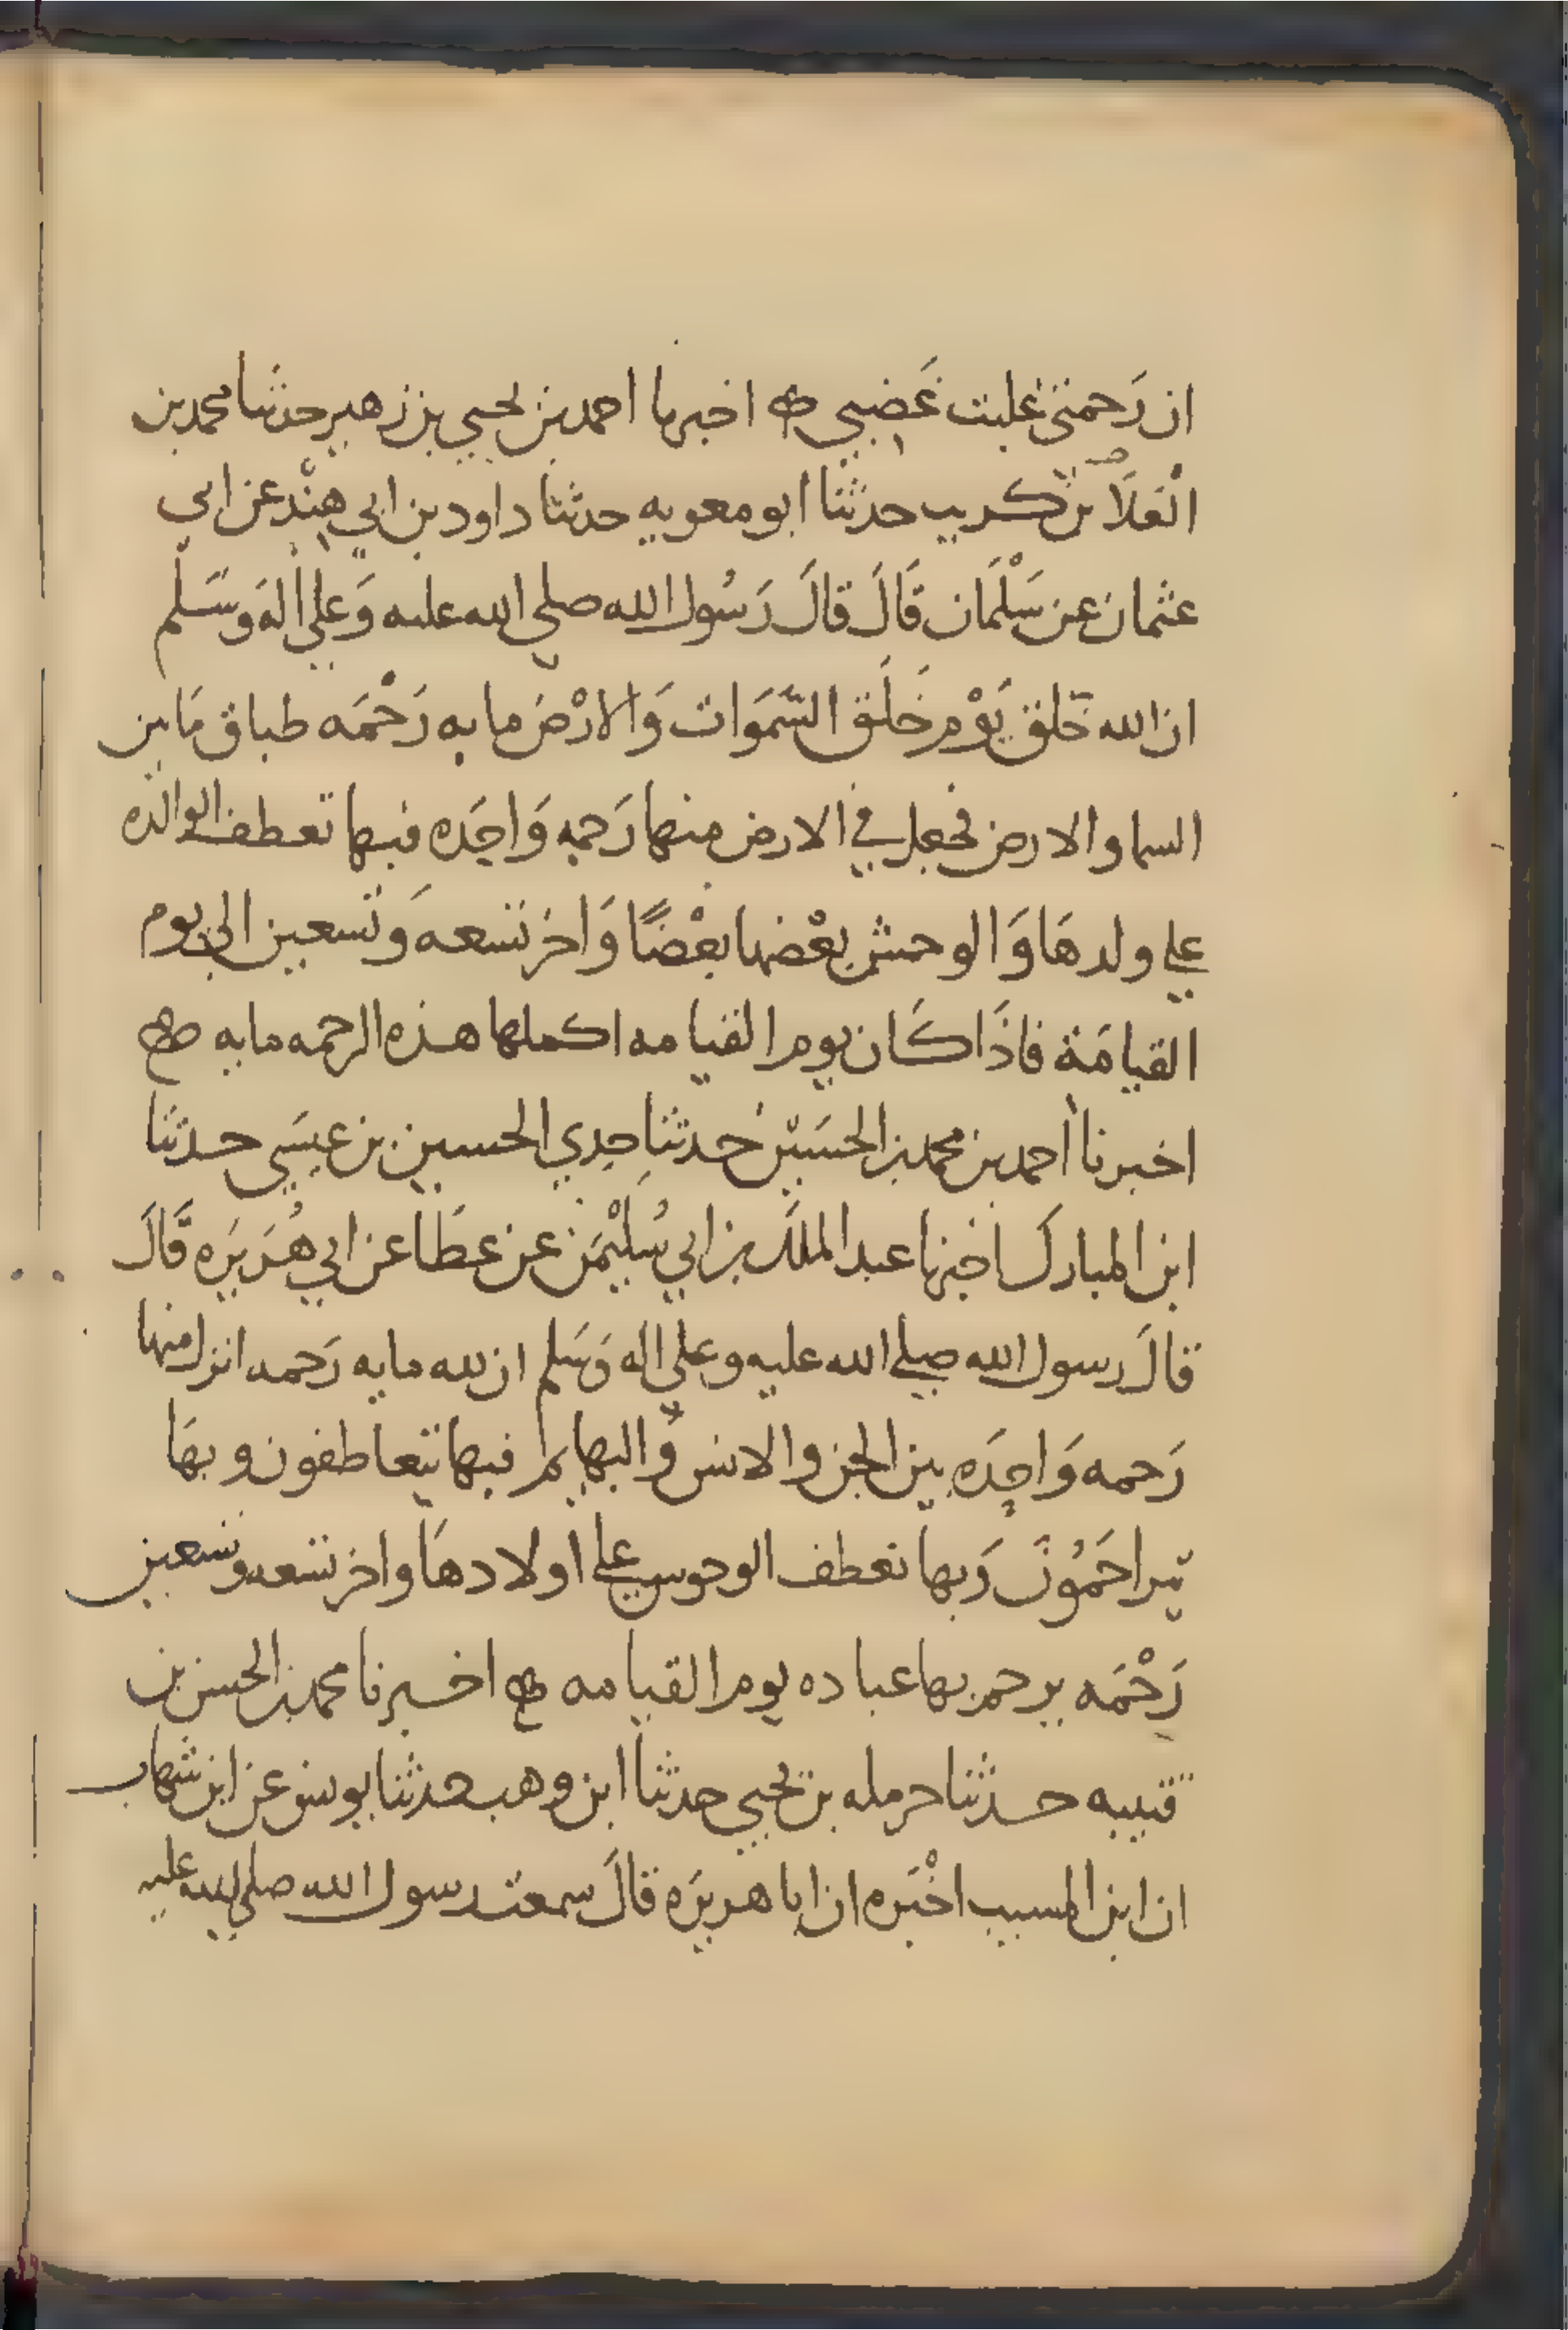 ان رَحمتي غلبت غَضبي ه اخبرنا احمد بن يحيي بن زهير حدثنا محمد بن
الْعَلَا بن كريب حدثنا ابو معويه حدثنا داود بن ابي هِنْد عن ابي
عثمان عن سَلْمَان قَالَ قالَ رَسُول الله صلي الله عليه وَعلي اله وسَلم
ان الله خَلق يَوْم خَلَق السَّمَوَات وَالارْض مايه رَحْمَه طباق مَا بين
السما والارض فجعل في الارض منها رَحمه وَاحِدَه فبها تعطف الوالده
علي ولدهَا وَالوحش بعْضها بعْضًا وَاخر تسعه وَتسعين الي يوم
القيامَة فاذَا كَان يوم القيامه اكملها هذه الرحمه مايه ه
اخبرنا احمد بن محمد بن الحسَين حدثنا جدي الحسين بن عيسَي حدثنا
ابن المبارك اخبرنا عبد الملك بن ابي سُلَيْمَن عن عطَا عن ابي هُرَيرَه قَالَ
قالَ رسول الله صلي الله عليه وعلي اله وَسَلم ان لله مايه رَحمه انزل منها
رَحمه وَاحِدَه بين الجن والانس وَالبهايم فبها يتعاطفون وبهَا
يتراحَمُونَ وَبها تعطف الوحوش علي اولادهَا واخر تسعه وتسعين
رَحْمَه يرحم بها عباده يوم القيامه ه اخبرنا محمد بن الحسن بن
قتيبه حدثنا حرمله بن يحيي حدثنا ابن وهب حدثنا يونس عن ابن شهاب
ان ابن المسيب اخْبَره ان ابا هريرَه قالَ سمعت رسول الله صلي الله عليه